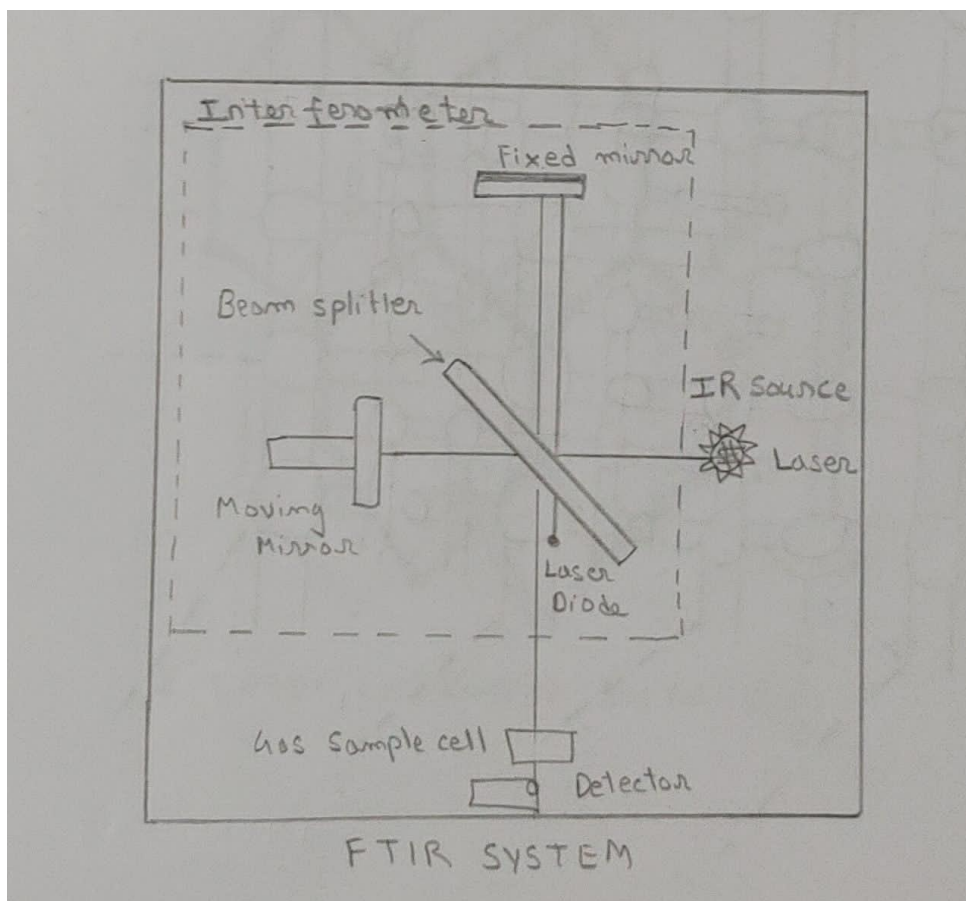 Interferometer
Fixed mirror
Beam splitter
IR Source
Laser
Moving
Mirror
Laser
Diode
Gas Sample cell
Detector
FTIR SYSTEM